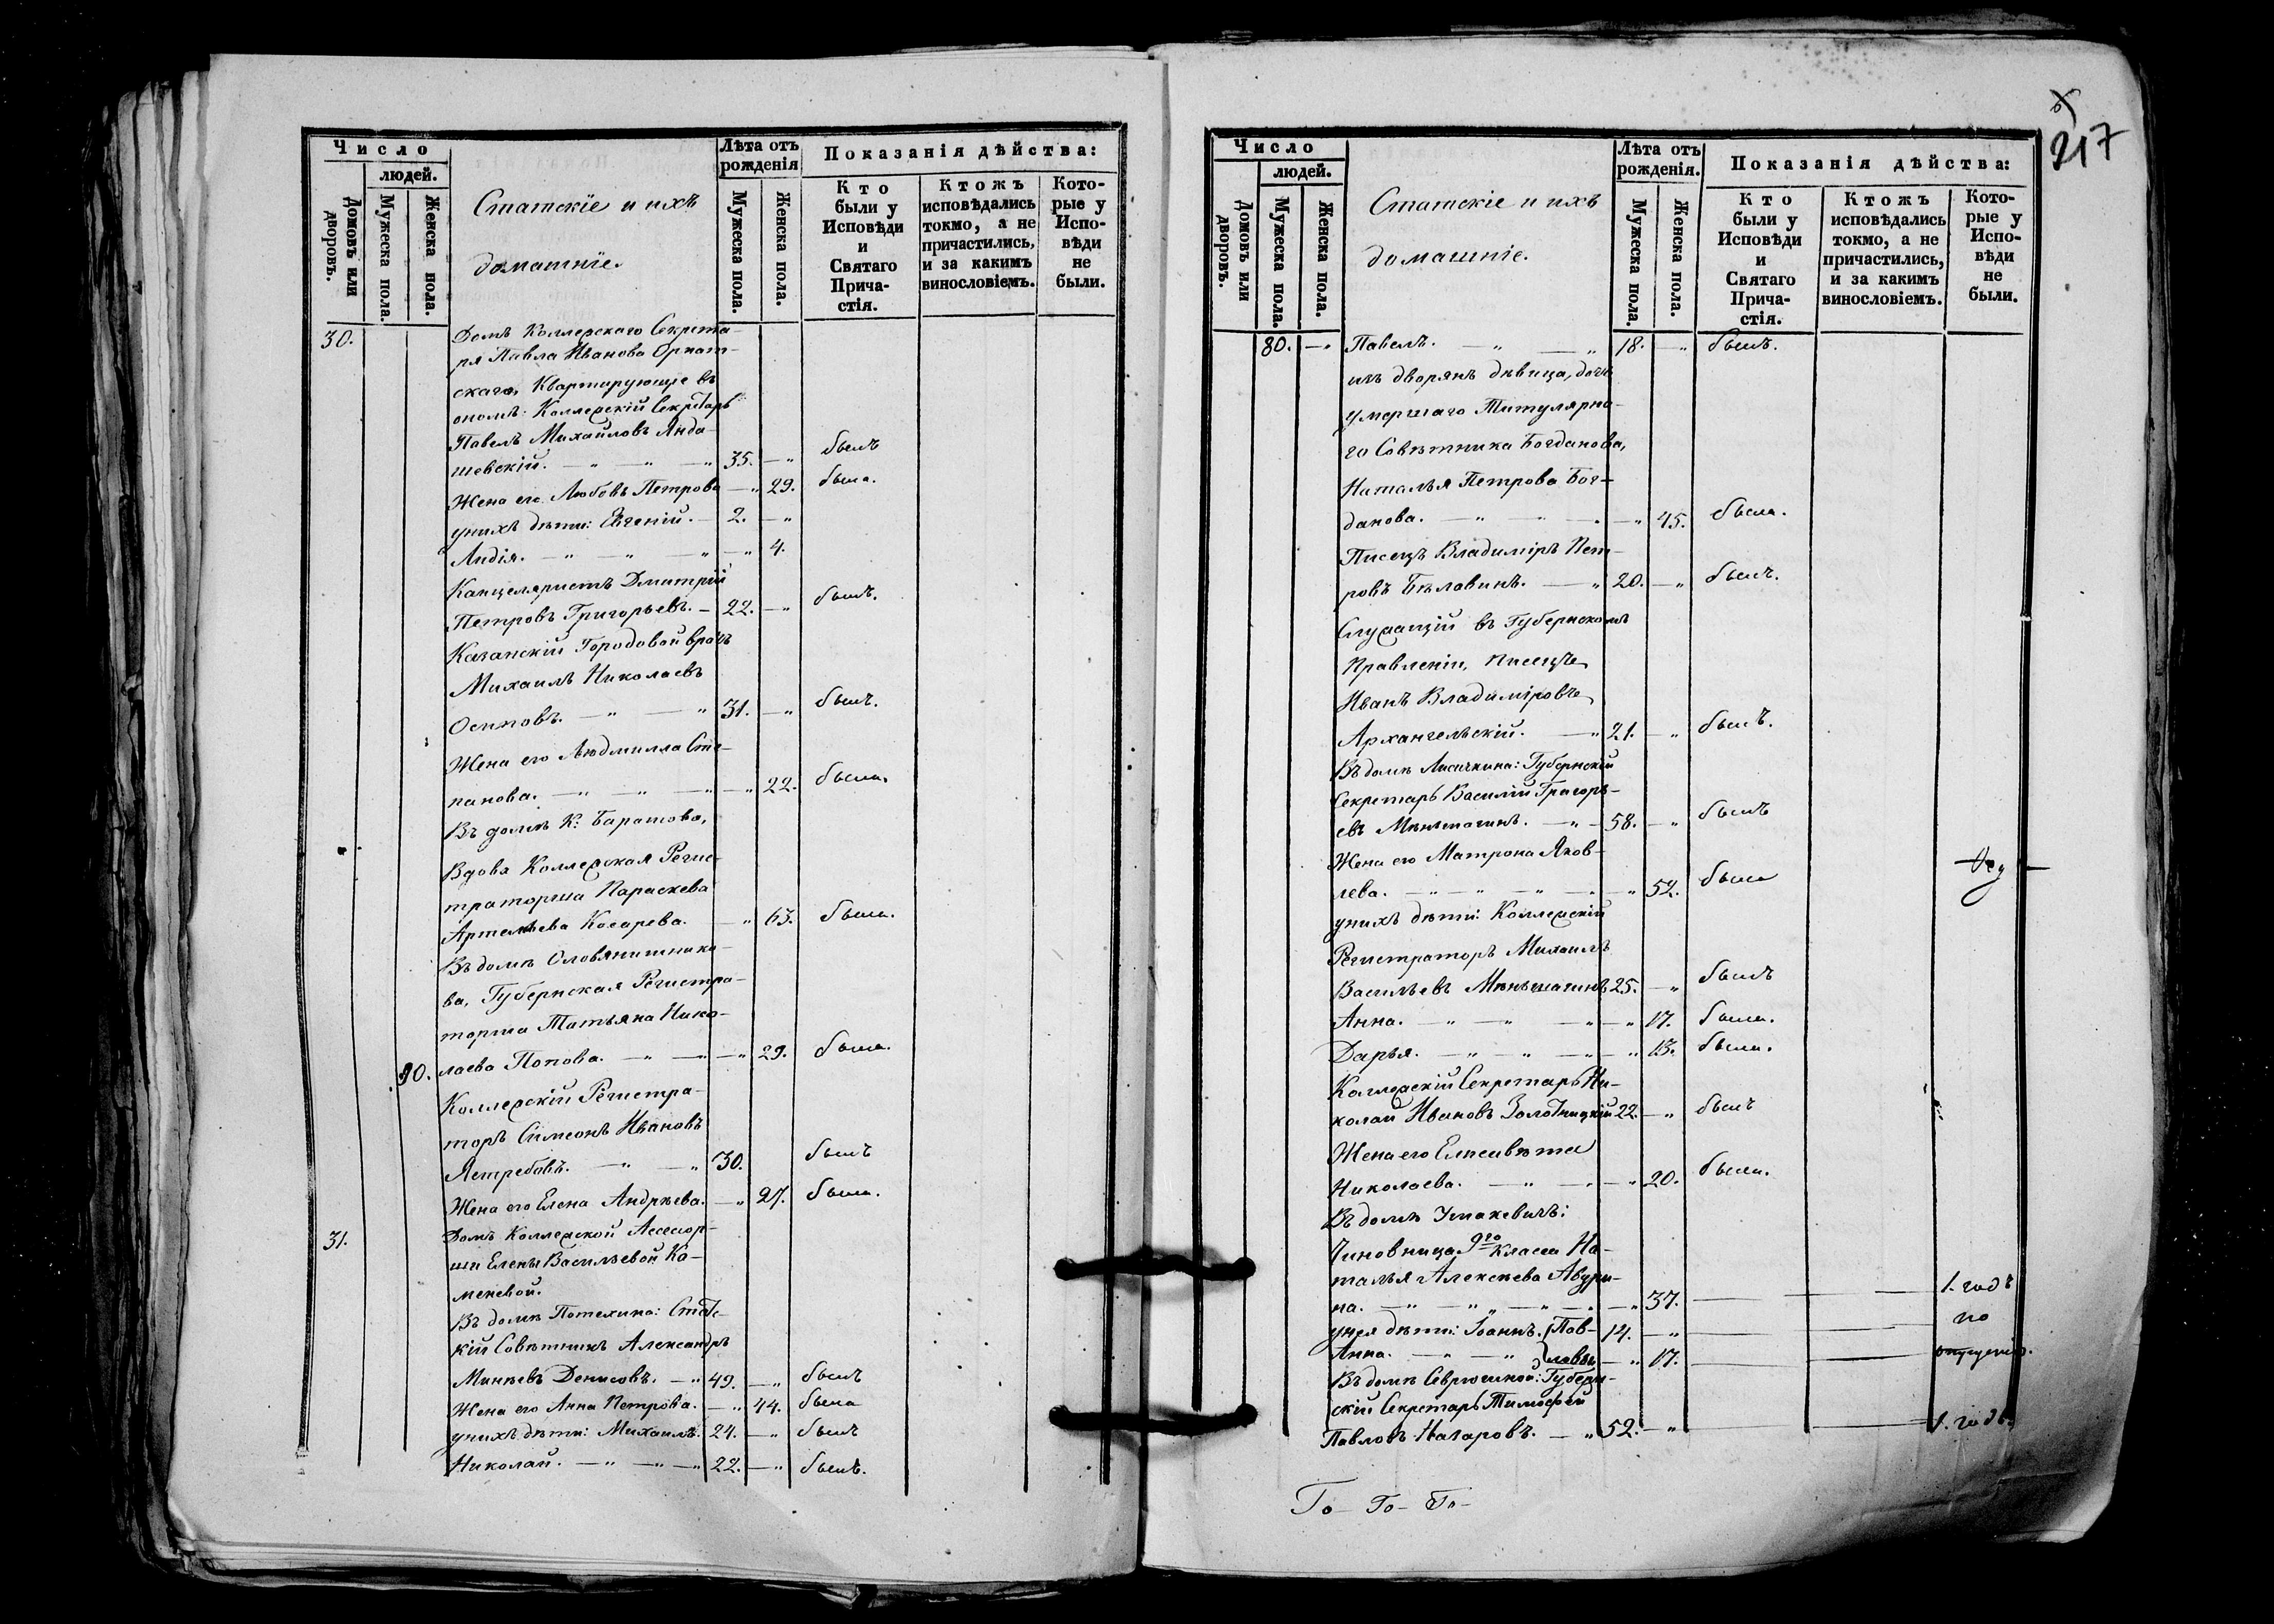 Число
людей.
Домовъ или дворовъ.
Мужеска пола.
Женска пола.
Статскіе и ихъ
домашніе.
Лѣта отъ рожденія
Мужеска пола.
Женска пола.
Показанія дѣйства:
Кто были у Исповѣди и Святаго Прича-стія.
Ктожъ исповѣдались токмо, а не причастились, и за какимъ винословіемъ.
Кото-рые у Испо-вѣди не были.
30. Домъ Коллежскаго Секрета-
ря Павла Иванова Орнат-
скаго, Квартирующие въ
ономъ: Коллежскій Секретарь
Павелъ Михайловъ Янда-
шевскій. — „ — „ — „ 35. — „ былъ
Жена его Любовь Петрова — „ 29. была.
у нихъ дѣти: Евгеній. — 2. — „
Лидія. — „ — „ — „ — „ 4.
Канцеляристъ Дмитрій
Петровъ Григорьевъ. — 22. — „ былъ.
Казанскій Городовой врачъ
Михаилъ Николаевъ
Осиповъ. — „ — „ 31. — „ былъ.
Жена его Людмилла Сте-
панова. — „ — „ — „ — „ 22. была.
Въ домѣ К: Баратова,
Вдова Коллежская Регис-
траторша Параскева
Артемьева Косарева. — „ 63. была.
Въ домѣ Словянишнико-
ва, Губернская Регистра-
торша Татьяна Нико-
90. лаева Попова. — „ — „ — „ 29. была.
Коллежскій Регистра-
торъ Симеонъ Ивановъ
Ястребовъ. — „ — „ 30. былъ
Жена его Елена Андрѣева. — „ 27. была.
31. Домъ Коллежской Ассесор-
ши Елены Васильевой Ка-
меневой.
Въ домѣ Потехина: Статс-
кій Совѣтникъ Александръ
Минѣевъ Денисовъ. — „ 49. — „ былъ
Жена его Анна Петрова. — „ 44. была
у нихъ дѣти: Михаилъ. 24. — „ былъ
Николай. — „ — „ — „ 22. — „ былъ.
217
Число
людей.
Домовъ или дворовъ.
Мужеска пола.
Женска пола.
Статскіе и ихъ
домашніе.
Лѣта отъ рожденія.
Мужеска пола.
Женска пола.
Показанія дѣйства:
Кто были у Исповѣди и Святаго Прича-стія.
Ктожъ исповѣдались токмо, а не причастились, и за какимъ винословіемъ.
Кото-рые у Испо-вѣди не были.
80. — „ Павелъ. — „ — „ 18. — „ былъ.
изъ дворянъ дѣвица, дочь
умершаго Титулярна-
го Совѣтника Богданова,
Наталья Петрова Бог-
данова. — „ — „ — „ 45. была.
Писецъ Владиміръ Пет-
ровъ Бѣлавинъ. — „ 20. — „ былъ.
Служащій въ Губернскомъ
Правленіи, писецъ
Иванъ Владиміровъ
Архангельскій. — „ 21. — „ былъ.
Въ домѣ Лисичкина: Губернскій
Секретарь Василій Григорь-
евъ Мѣньшагинъ. — „ — 58. — „ былъ
Жена его Матрона Яков-
лева. — „ — „ — „ — „ 52. была
у нихъ дѣти: Коллежскій
Регистраторъ Михаилъ
Васильевъ Мѣньшагинъ 25. — „ былъ
Анна. — „ — „ — „ 17. была.
Дарья. — „ — „ — „ 13. была.
Коллежскій Секретарь Ни-
колай Ивановъ Золотницкій 22. — „ былъ
Жена его Елисавета
Николаева. — „ — „ 20. была.
Въ домѣ Умакевичъ:
Чиновница 9го класса На-
талья Алексѣева Авдри-
на. — „ — „ — „ — „ 37. — — 1. годъ
у нея дѣти: Іоаннъ. Пав- 14. — „ — — по
Анна. — „ — „ ловы — „ 17. — — опущенію.
Въ домѣ Севрюгиной: Губерн-
скій Секретарь Тимофей
Павловъ Назаровъ. — „ 52. — „ — — 1. годъ.
Го — Го — Го —